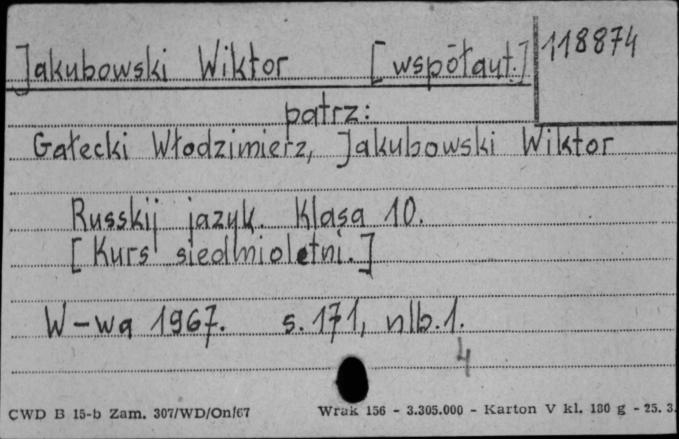 Jakubowski Wiktor [współaut.] 118874
patrz:
Gałecki Włodzimierz, Jakubowski Wiktor
Russkij jazyk. Klasa 10.
[Kurs siedmioletni.]
W-wa 1967. s. 171, nlb. 1.
4
CWD B 15-b Zam. 307/WD/On/67 Wrak 156 - 3.305.000 - Karton V kl. 180 g - 25. 3.